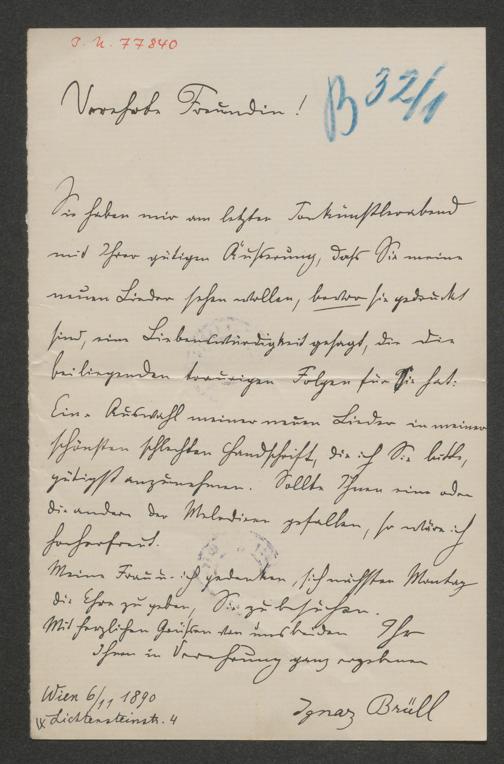 J. N. 77840
B 32/1
Verehrte Freundin!
Sie haben mir am letzten Tonkünstlerabend
mit Ihrer gütigen Äußerung, daß Sie meine
neuen Lieder sehen wollen, bevor sie gedruckt
sind, eine Liebenswürdigkeit gesagt, die die
beiliegenden traurigen Folgen für Sie hat:
Eine Auswahl meiner neuen Lieder in meiner
schönsten schlechten Handschrift, die ich Sie bitte,
gütigst anzunehmen. Sollte Ihnen eine oder
die andere der Melodieen gefallen, so wäre ich
hocherfreut.
Meine Frau u. ich gedenken, sich nächsten Montag
die Ehre zu geben, Sie zu besuchen.
Mit herzlichen Grüßen von uns beiden Ihr
Ihnen in Verehrung ganz ergebener
Ignaz Brüll
Wien 6/11 1890
IX Lichtensteinstr. 4